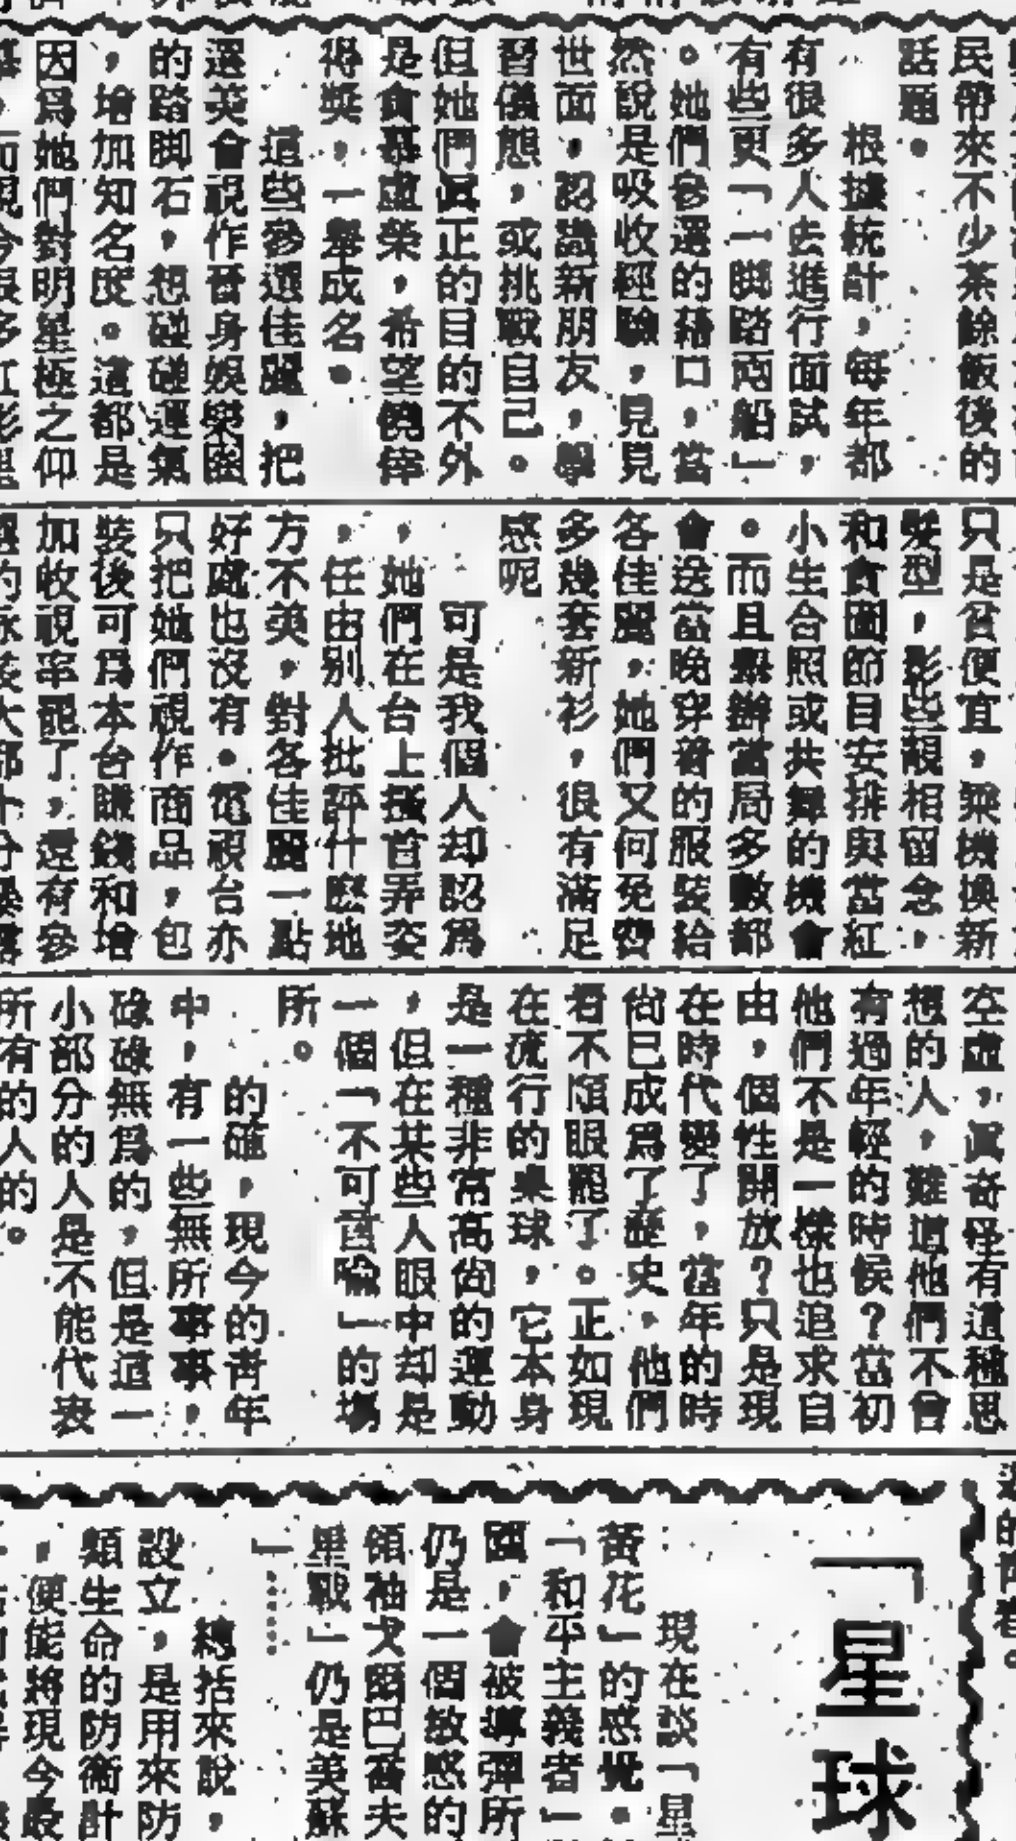 民帶來不少茶餘飯後的
話題。
根據統計，每年都
有很多人去進行面試，
有些更「一脚踏兩船」
。她們參選的藉口，當
然說是吸收經驗，見見
世面，認識新朋友，學
習儀態，或挑戰自己。
但她們眞正的目的不外
是貪慕虛榮，希望僥倖
得獎，一舉成名。
這些參選佳麗，把
選美會視作晉身娛樂圈
的踏脚石，想碰碰運氣
，增加知名度。這都是
因爲她們對明星極之仰
只是貪便宜，乘機換新
髮型，影些靚相留念，
和貪圖節目安排與當紅
小生合照或共舞的機會
。而且舉辦當局多數都
會送當晚穿著的服裝給
各佳麗，她們又何免費
多幾套新衫，很有滿足
感呢
可是我個人却認爲
，她們在台上搔首弄姿
，任由別人批評什麽地
方不美，對各佳麗一點
好處也沒有。電視台亦
只把她們視作商品，包
裝後可爲本台賺錢和增
加收視率罷了，還有參
空虛，眞奇怪有這種思
想的人，難道他們不曾
有過年輕的時候？當初
他們不是一樣也追求自
由，個性開放？只是現
在時代變了，當年的時
尙已成爲了歷史，他們
看不順眼罷了。正如現
在流行的桌球，它本身
是一種非常高尙的運動
，但在某些人眼中却是
一個「不可言喩」的場
所。
的確，現今的靑年
中，有一些無所事事，
碌碌無爲的，但是這一
小部分的人是不能代表
所有的人的。
「星球
現在談「星
黃花」的感覺。
「和平主義者」
國，會被導彈所
仍是一個敏感的
領袖戈爾巴喬夫
星戰」仍是美蘇
」……
總括來說，
設立，是用來防
類生命的防衞計
，便能將現今最